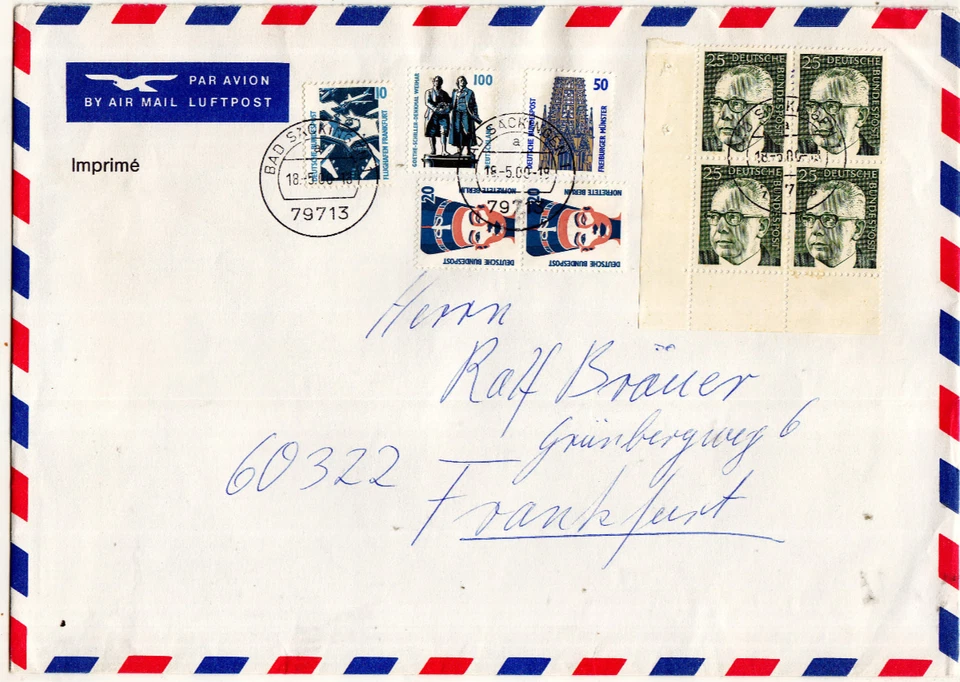 PAR AVION
BY AIR MAIL LUFTPOST
Imprimé
10
DEUTSCHE BUNDESPOST
FLUGHAFEN FRANKFURT
100
GOETHE-SCHILLER-DENKMAL WEIMAR
DEUTSCHLAND
50
DEUTSCHE BUNDESPOST
FREIBURGER MÜNSTER
20
NOFRETETE BERLIN
DEUTSCHE BUNDESPOST
20
NOFRETETE BERLIN
DEUTSCHE BUNDESPOST
25 DEUTSCHE
BUNDESPOST
25 DEUTSCHE
BUNDESPOST
25 DEUTSCHE
BUNDESPOST
25 DEUTSCHE
BUNDESPOST
BAD SÄCKI
18.-5.00-18
79713
SÄCKINGEN
a
18.-5.00-18
797
a
18.-5.00-18
Herrn
Ralf Bräuer
Grünbergweg 6
60322 Frankfurt